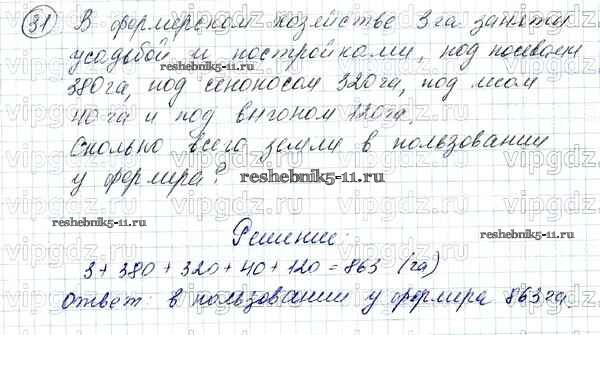 31 В фермерском хозяйстве 3 га заняты
усадьбой и постройками, под посевами
380 га, под сенокосом 320 га, под лесом
40 га и под выгоном 120 га.
Сколько всего земли в пользовании
у фермера?
Решение:
3 + 380 + 320 + 40 + 120 = 863 (га)
Ответ: в пользовании у фермера 863 га.
reshebnik5-11.ru
reshebnik5-11.ru
reshebnik5-11.ru
reshebnik5-11.ru
vipgdz.ru